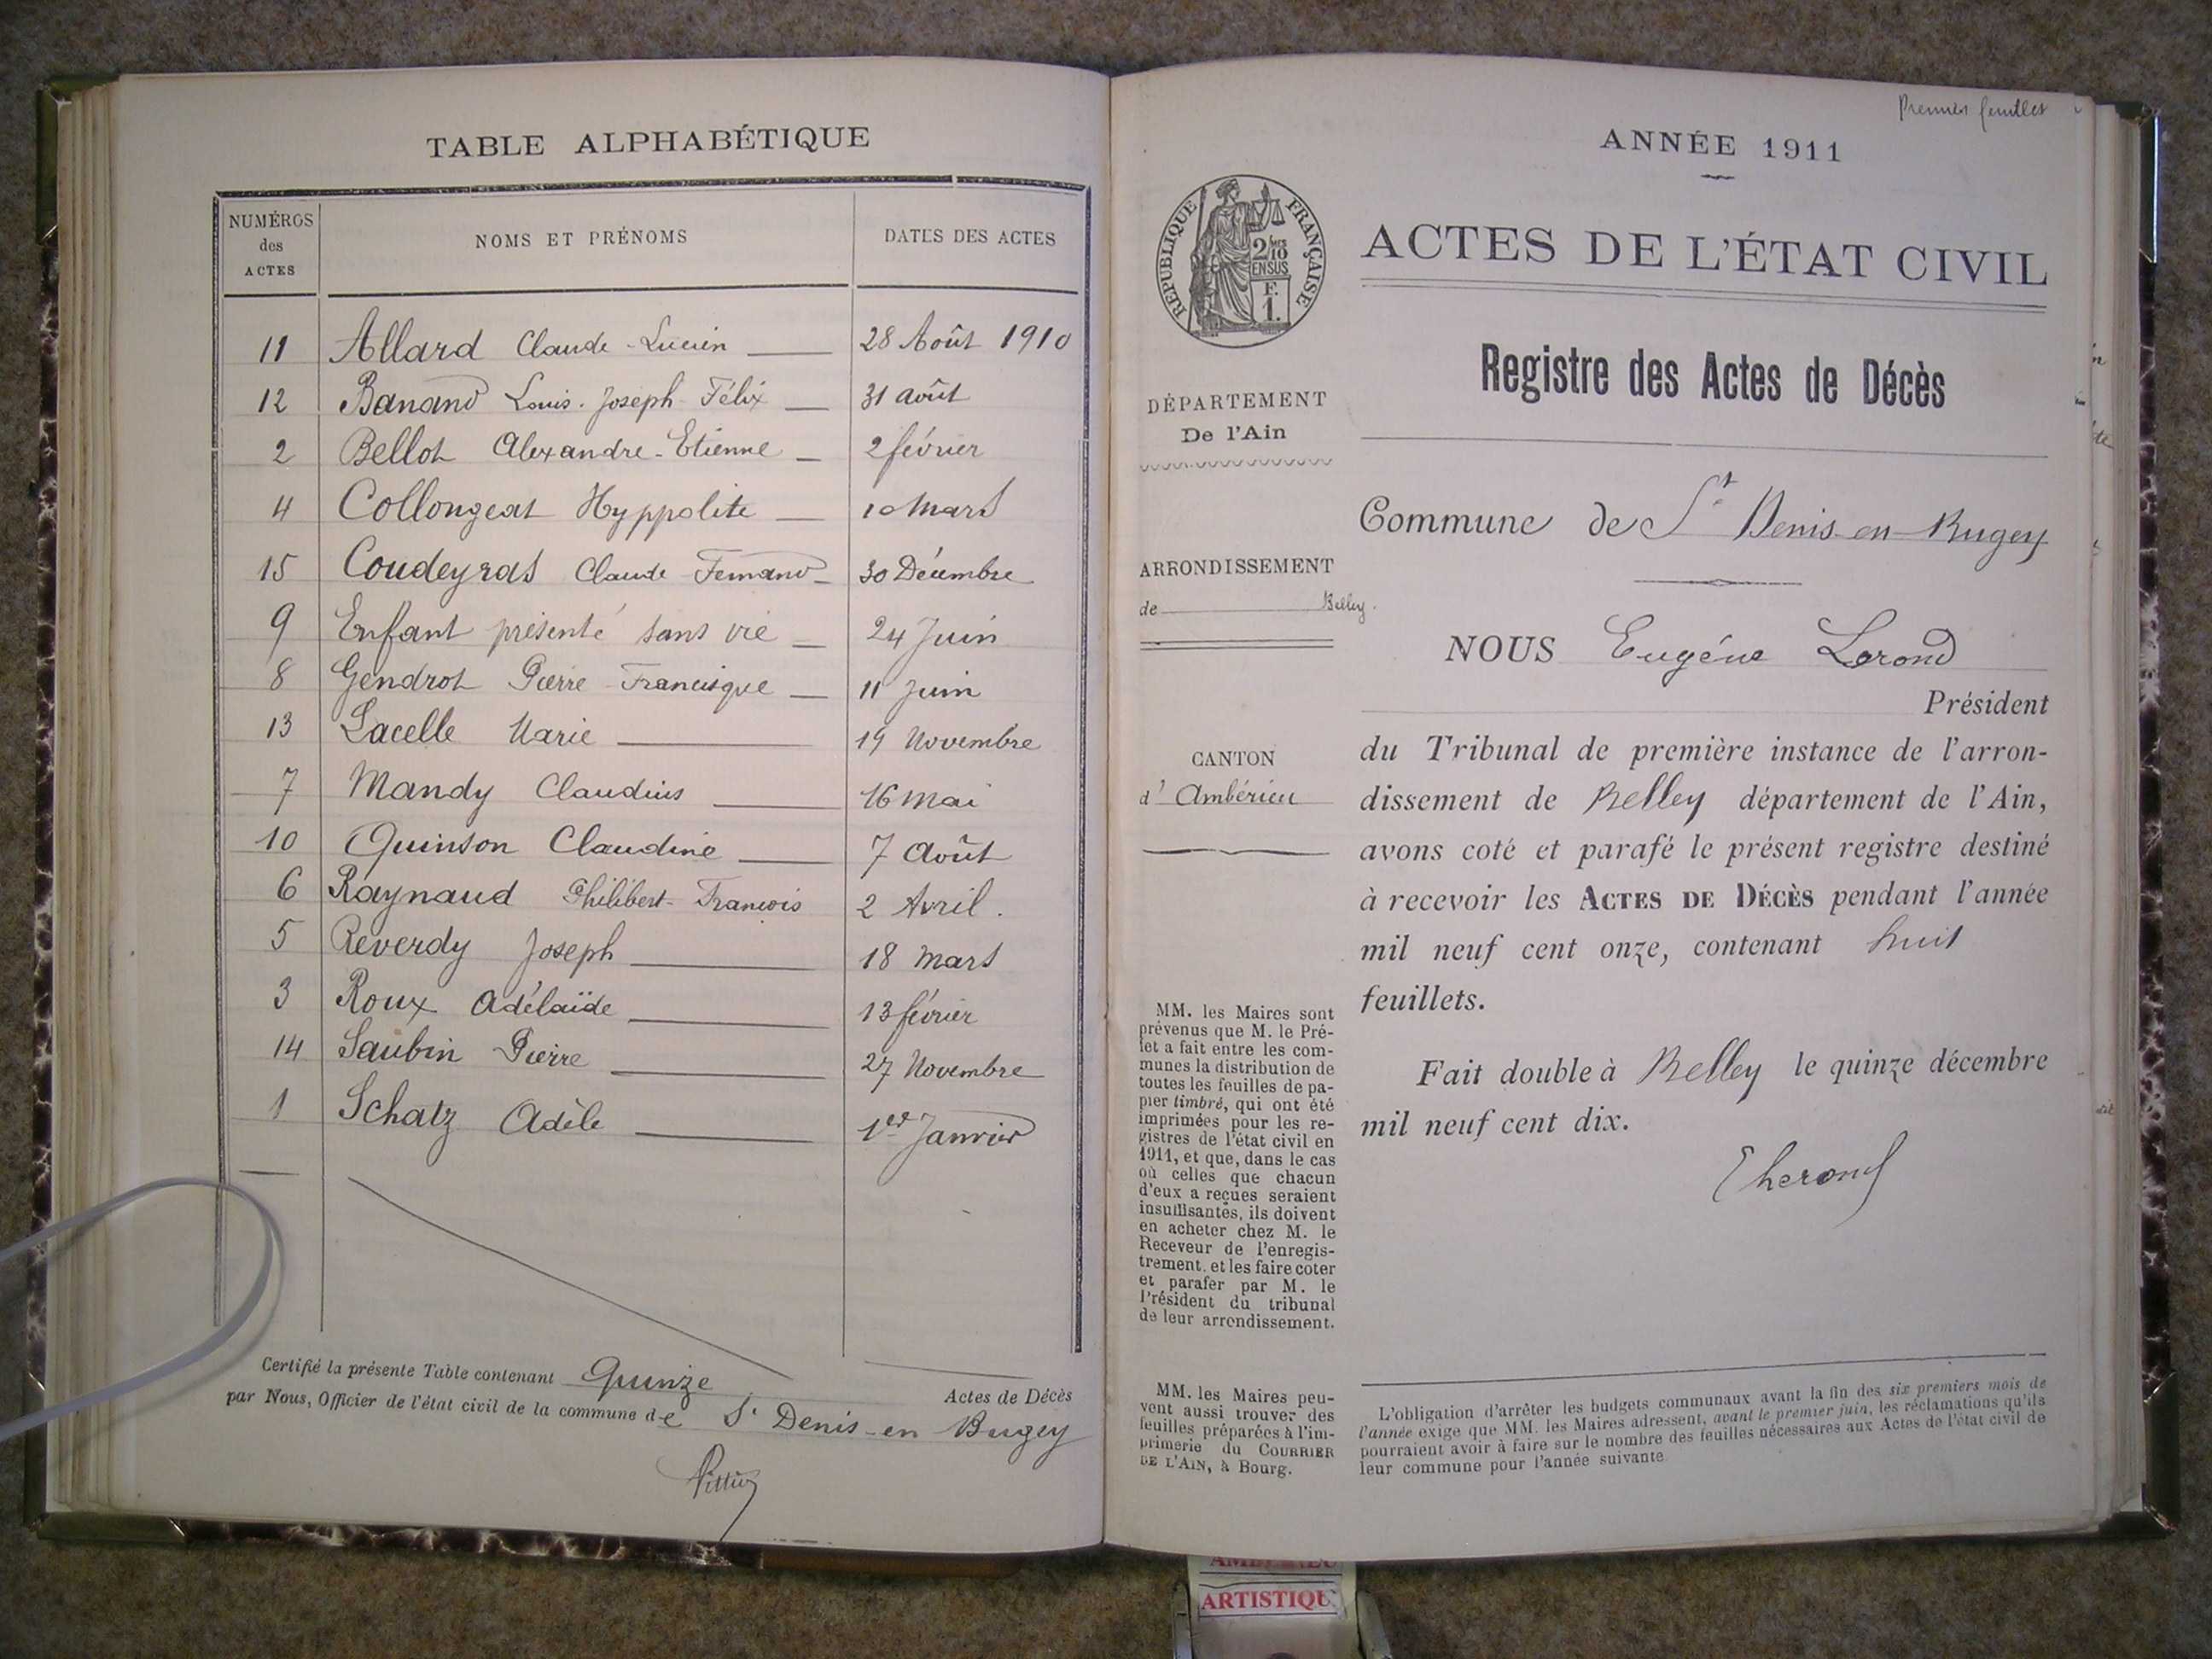 TABLE ALPHABÉTIQUE
NUMÉROS des ACTES NOMS ET PRÉNOMS DATES DES ACTES
11 Allard Claude-Lucien 28 Août 1910
12 Banand Louis-Joseph-Félix 31 août
2 Bellot Alexandre-Etienne 2 février
4 Collongeat Hyppolite 10 Mars
15 Coudeyras Claude-Fernand 30 Décembre
9 Enfant présenté sans vie 24 Juin
8 Gendrot Pierre-Francisque 11 Juin
13 Lacelle Marie 19 Novembre
7 Mandy Claudius 16 Mai
10 Quinson Claudine 7 Août
6 Raynaud Philibert-François 2 Avril.
5 Reverdy Joseph 18 Mars
3 Roux Adélaïde 13 février
14 Saubin Pierre 27 Novembre
1 Schatz Adèle 1er Janvier
Certifié la présente Table contenant Quinze Actes de Décès
par Nous, Officier de l'état civil de la commune de St Denis-en Bugey
Premier feuillet
ANNÉE 1911
RÉPUBLIQUE FRANÇAISE
2/10
EN SUS
F.
1.
ACTES DE L'ÉTAT CIVIL
Registre des Actes de Décès
DÉPARTEMENT
De l'Ain
ARRONDISSEMENT
de Belley.
CANTON
d'Ambérieu
MM. les Maires sont
prévenus que M. le Pré-
fet a fait entre les com-
munes la distribution de
toutes les feuilles de pa-
pier timbré, qui ont été
imprimées pour les re-
gistres de l'état civil en
1911, et que, dans le cas
où celles que chacun
d'eux a reçues seraient
insuffisantes, ils doivent
en acheter chez M. le
Receveur de l'enregis-
trement, et les faire coter
et parafer par M. le
Président du tribunal
de leur arrondissement.
MM. les Maires peu-
vent aussi trouver des
feuilles préparées à l'im-
primerie du COURRIER
DE L'AIN, à Bourg.
Commune de St Denis-en-Bugey
NOUS Eugène
Président
du Tribunal de première instance de l'arron-
dissement de Belley département de l'Ain,
avons coté et parafé le présent registre destiné
à recevoir les ACTES DE DÉCÈS pendant l'année
mil neuf cent onze, contenant huit
feuillets.
Fait double à Belley le quinze décembre
mil neuf cent dix.
L'obligation d'arrêter les budgets communaux avant la fin des six premiers mois de
l'année exige que MM. les Maires adressent, avant le premier juin, les réclamations qu'ils
pourraient avoir à faire sur le nombre des feuilles nécessaires aux Actes de l'état civil de
leur commune pour l'année suivante.
ARTISTIQU